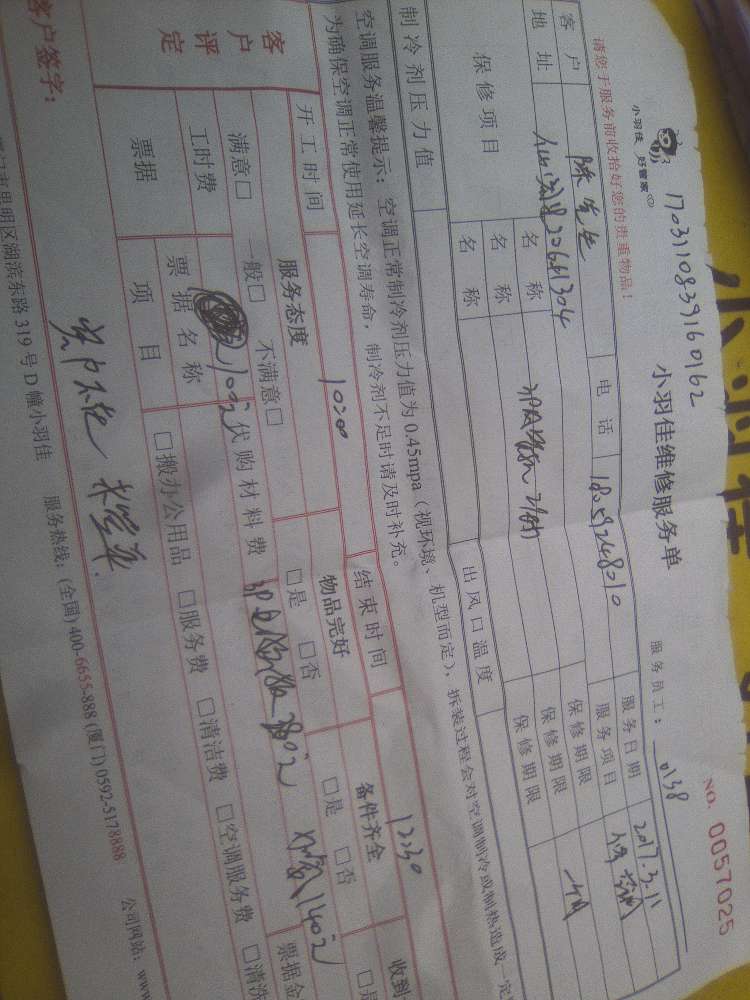 1703110839160162
小羽佳 好管家
小羽佳维修服务单
服务员工： 0138
NO. 0057025
请您于服务前收拾好您的贵重物品！
客户 陈先生 电话 18059248010 服务日期 2017.3.11
地址 服务项目
保修项目 名称 保修期限
名称 保修期限
名称 保修期限
制冷剂压力值 出风口温度
空调服务温馨提示：空调正常制冷剂压力值为0.45mpa（视环境、机型而定），拆装过程会对空调制冷或制热造成一定
为确保空调正常使用延长空调寿命，制冷剂不足时请及时补充。
开工时间 10:00 结束时间 12:30
客户评定 服务态度 物品完好 备件齐全 收到
满意□ 一般□ 不满意□ □是 □否 □是 □否
工时费 代购材料费
票据 票据名称 票据金
项目 □搬办公用品 □服务费 □清洁费 □空调服务费 □清洗
客户签字：
思明区湖滨东路319号D幢小羽佳 服务热线：(全国)400-6655-888 (厦门)0592-5178888 公司网站：www